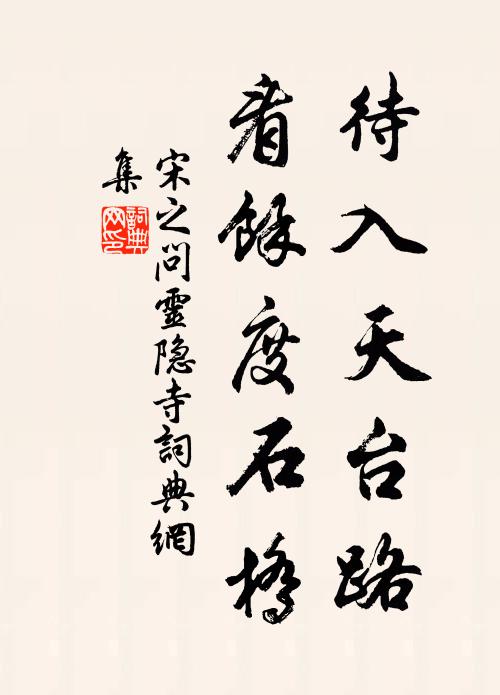 待入天台路
看餘度石橋
宋之问靈隐寺詞典網
集
詞典
网印